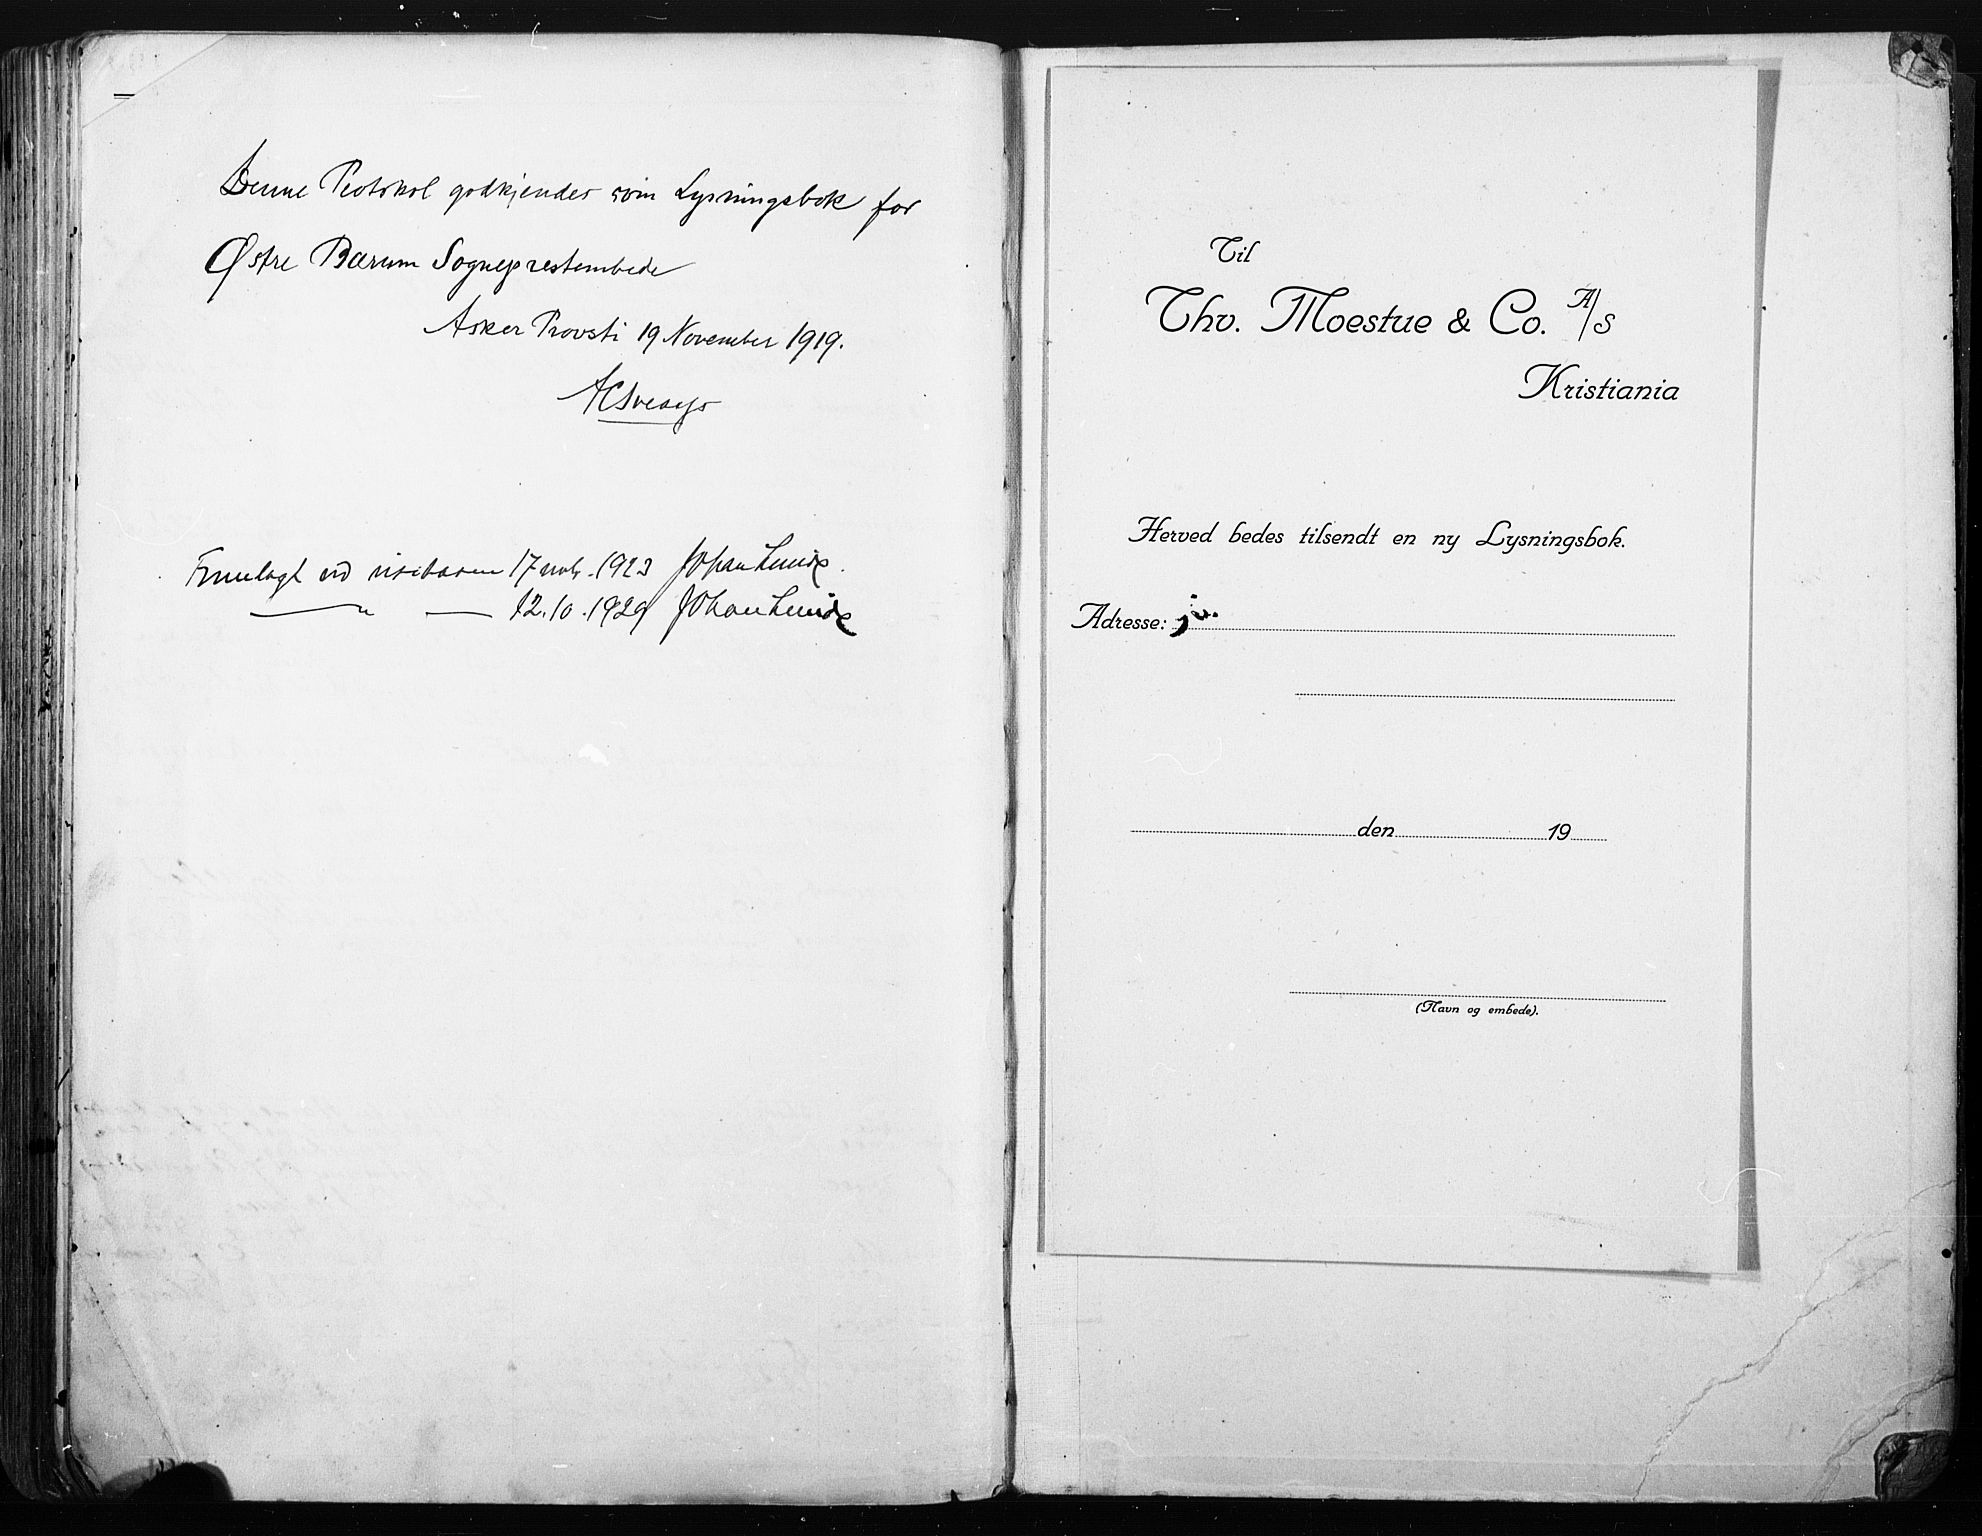 Denne Protokol godkjendes som Lysningsbok for
Østre Bærum Sogneprestembede
Asker Provsti 19 November 1919.
Fremlagt ved visitasen 17 nov. 1923 Johan Lunde.
— " — 12.10.1929 Johan Lunde
Til
Thv. Moestue & Co. A/S
Kristiania
Herved bedes tilsendt en ny Lysningsbok.
Adresse:
den 19
(Navn og embede).